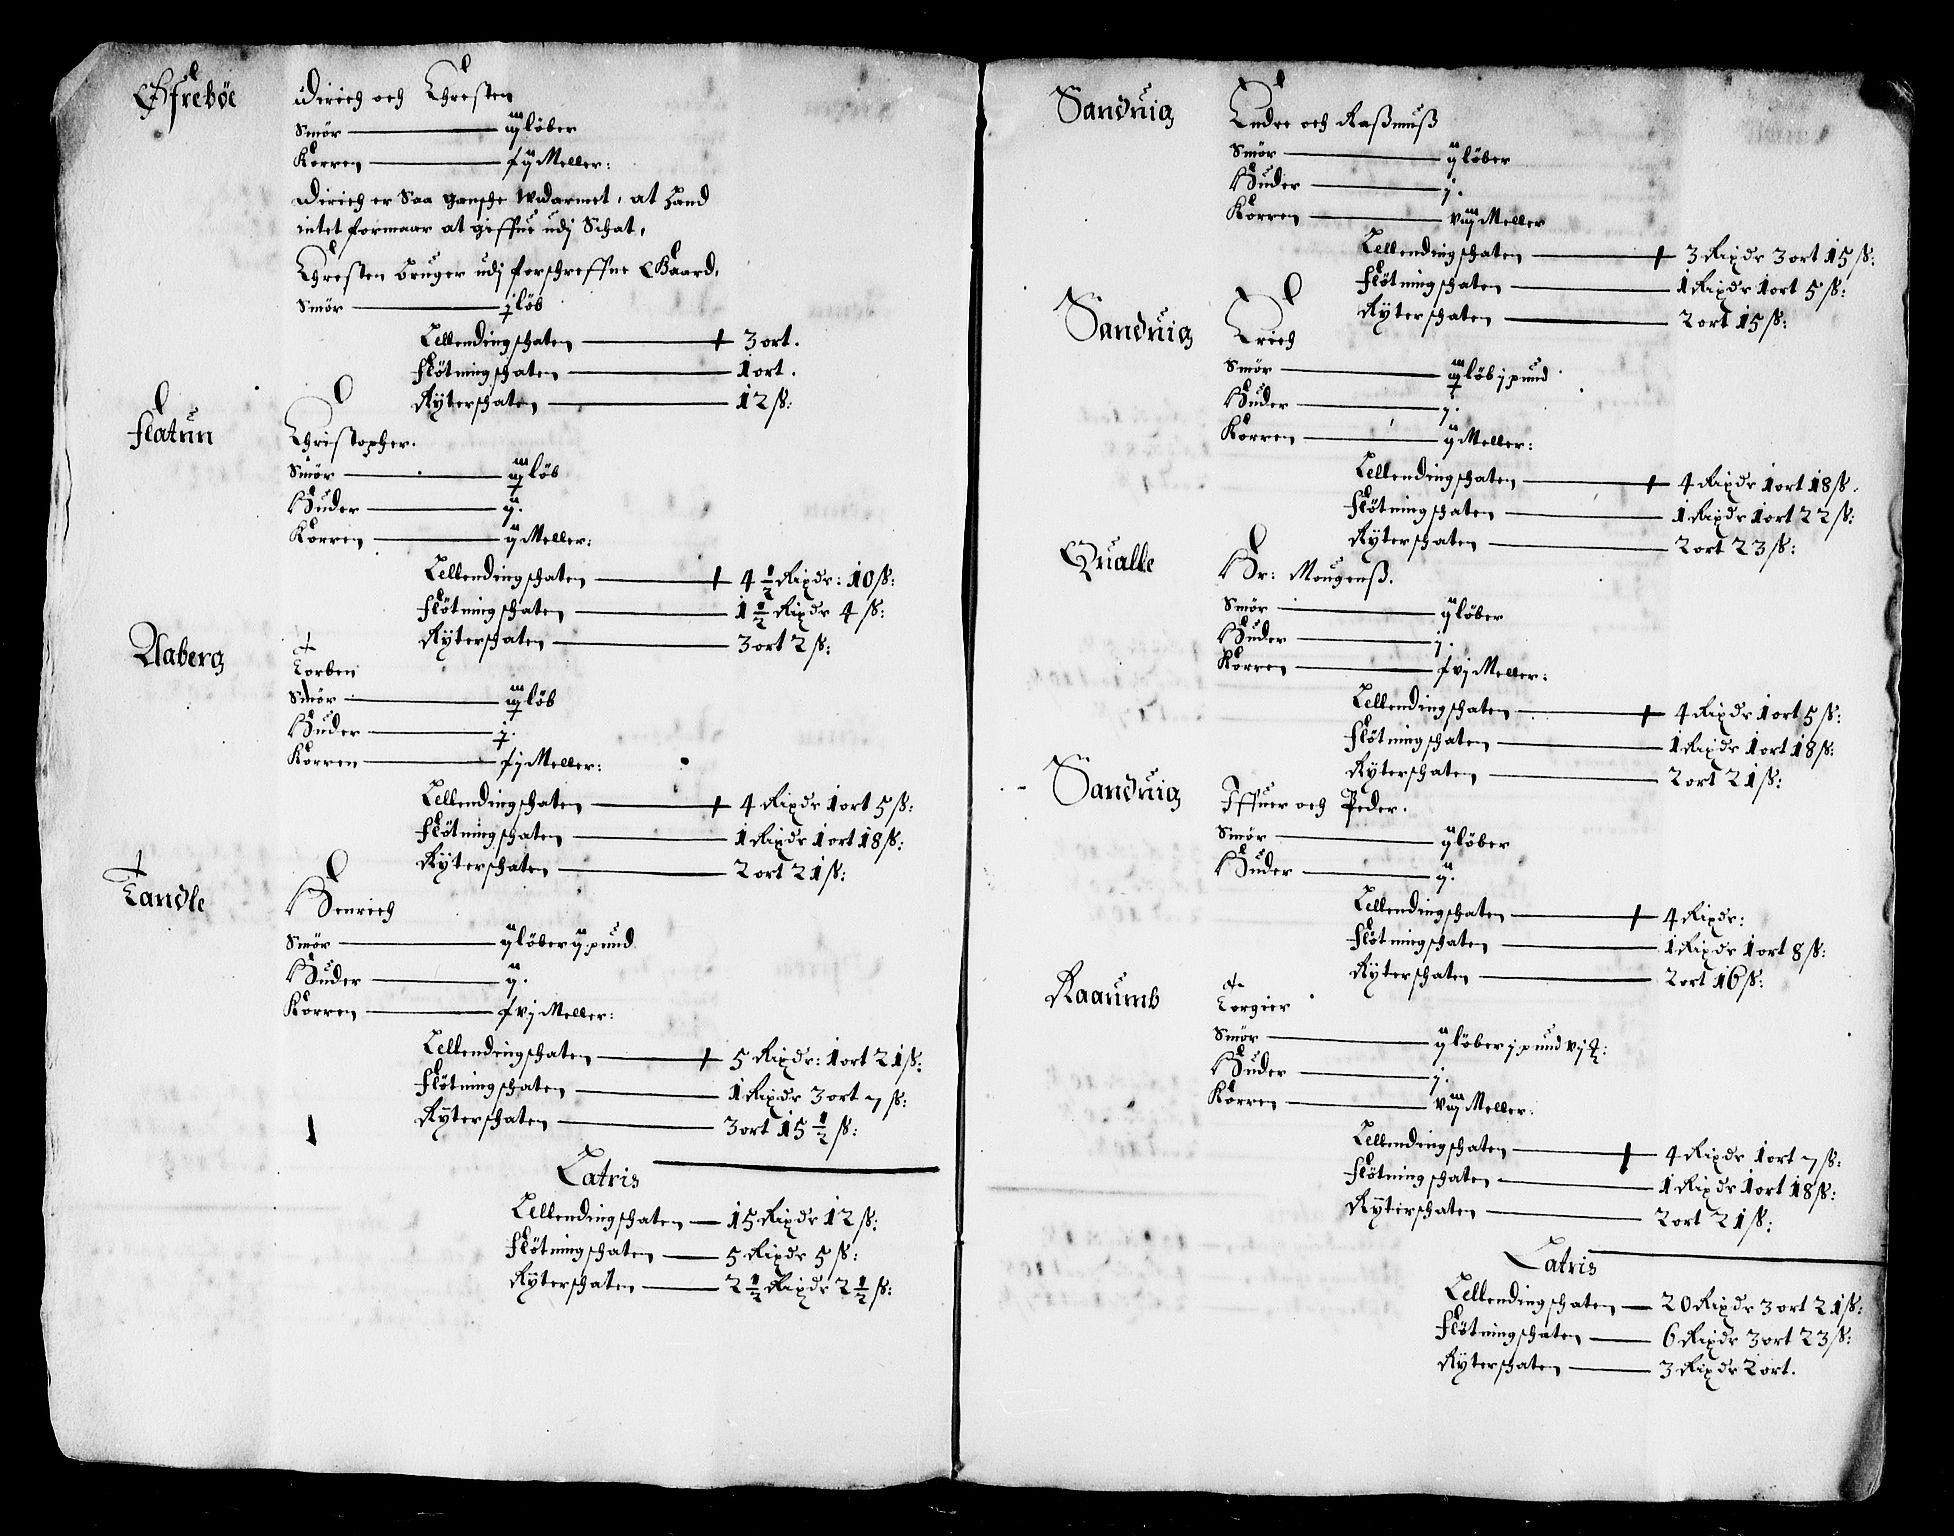 Øfrebøe
Dirich och Chresten
Smör — iiij löber
Korren — f ij Meller:
Dirich er Saa gansche wdarmet, at hand
intet formaar at giffue udj Schat,
Chresten bruger udj forschreffne Gaard,
Smör — j löb
Lellendingschaten — 3 ort.
Flötningschaten — 1 ort.
Rÿterschaten — 12 ß:
Flatun
Christopher.
Smör — iiij löb
Huder — ij.
Korren — ij Meller:
Lellendingschaten — 4 1/2 Rixdr: 10 ß:
Flötningschaten — 1 1/2 Rixdr 4 ß:
Rÿterschaten — 3 ort 2 ß:
Aaberg
Torben
Smör — iiij löb
Huder — j.
Korren — f j Meller:
Lellendingschaten — 4 Rixdr 1 ort 5 ß:
Flötningschaten — 1 Rixdr 1 ort 18 ß:
Rÿterschaten — 2 ort 21 ß:
Tandle
Henrich
Smör — ij löber ij pund
Huder — ij.
Korren — f vj Meller:
Lellendingschaten — 5 Rixdr: 1 ort 21 ß:
Flötningschaten — 1 Rixdr 3 ort 7 ß:
Rÿterschaten — 3 ort 15 1/2 ß:
Latris
Lellendingschaten — 15 Rixdr 12 ß:
Flötningschaten — 5 Rixdr 5 ß:
Rÿterschaten — 2 1/2 Rixdr 2 1/2 ß:
Sanduig
Endre och Raßmuß
Smör — ij löber
Huder — j.
Korren — viij Meller
Lellendingschaten — 3 Rixdr 3 ort 15 ß:
Flötningschaten — 1 Rixdr 1 ort 5 ß:
Rÿterschaten — 2 ort 15 ß:
Sanduig
Erich
Smör — iij löb j pund
Huder — j.
Korren — ij Meller:
Lellendingschaten — 4 Rixdr 1 ort 18 ß.
Flötningschaten — 1 Rixdr 1 ort 22 ß:
Rÿterschaten — 2 ort 23 ß:
Qualle
Hr: Mougenß.
Smör — ij löber
Huder — j.
Korren — f vj Meller:
Lellendingschaten — 4 Rixdr 1 ort 5 ß:
Flötningschaten — 1 Rixdr 1 ort 18 ß:
Rÿterschaten — 2 ort 21 ß:
Sanduig
Iffuer och Peder.
Smör — ij löber
Huder — ij.
Lellendingschaten — 4 Rixdr:
Flötningschaten — 1 Rixdr 1 ort 8 ß:
Rÿterschaten — 2 ort 16 ß:
Raaumb
Torgier
Smör — ij löber j pund vj
Huder — j.
Korren — viij Meller:
Lellendingschaten — 4 Rixdr 1 ort 7 ß:
Flötningschaten — 1 Rixdr 1 ort 18 ß:
Rÿterschaten — 2 ort 21 ß:
Latris
Lellendingschaten — 20 Rixdr 3 ort 21 ß:
Flötningschaten — 6 Rixdr 3 ort 23 ß:
Rÿterschaten — 3 Rixdr 2 ort.